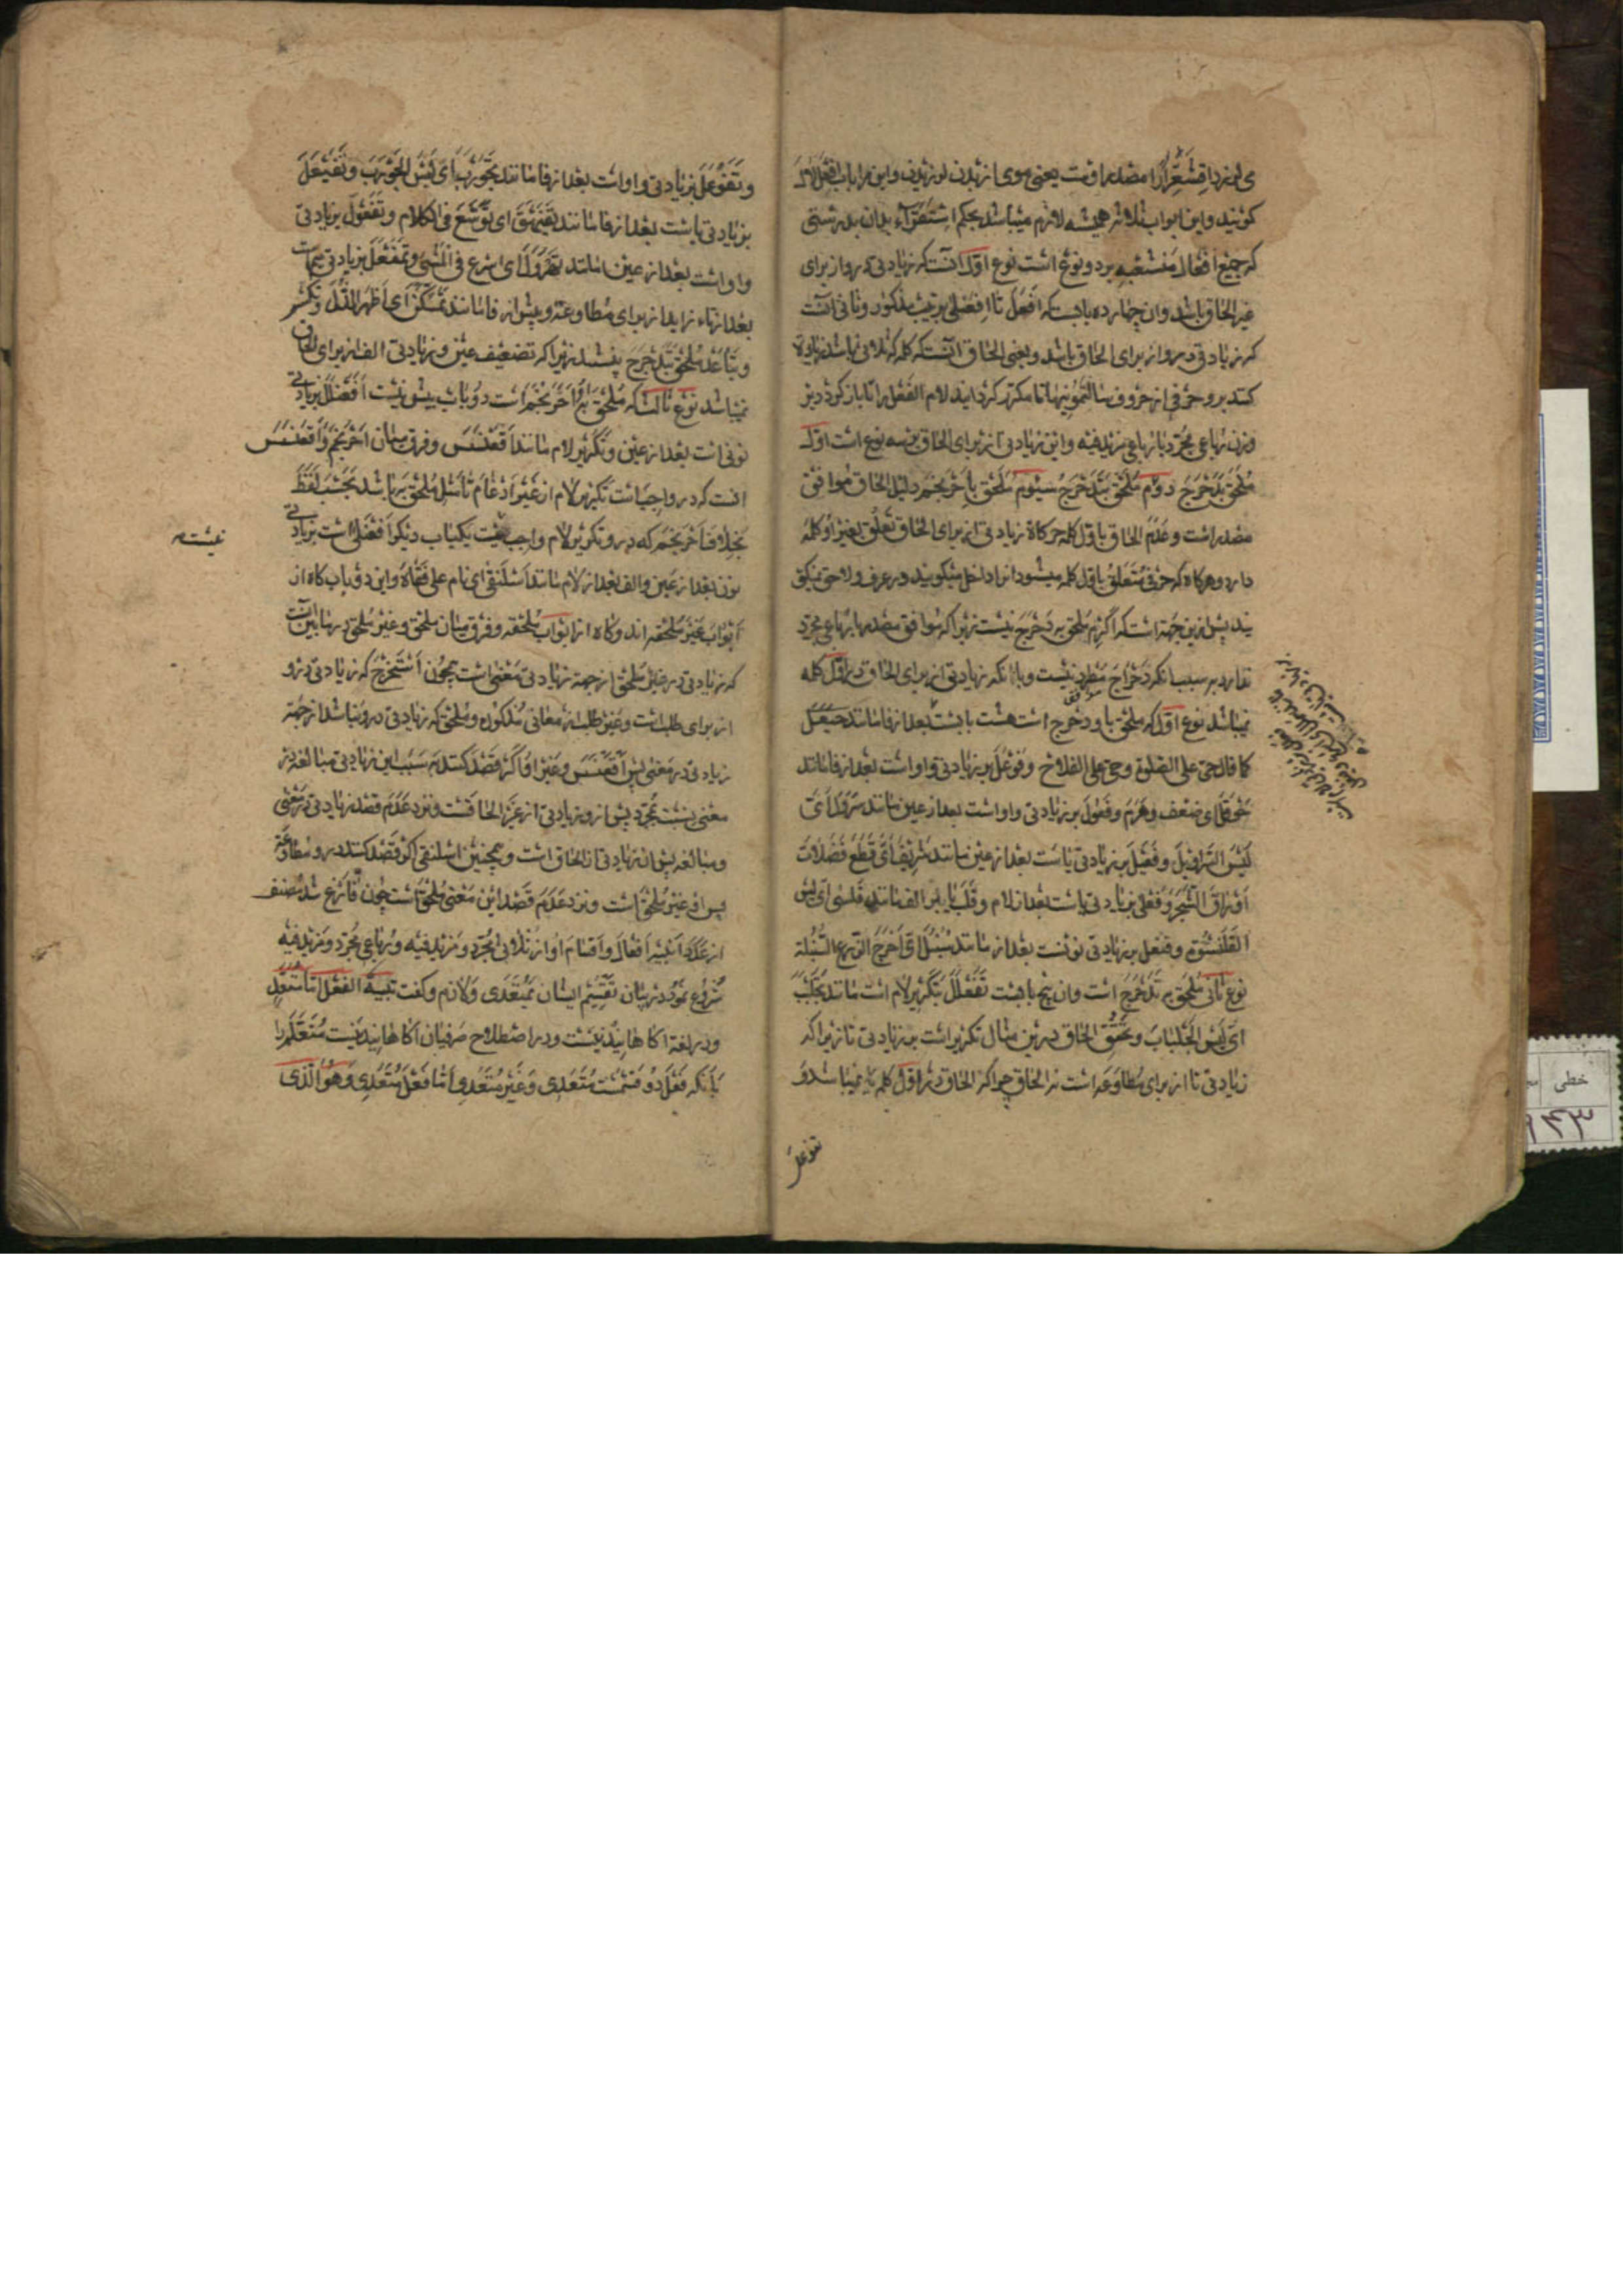 می لرزد اقشعرارا مصدر اوست یعنی موی از بدن لرزیدن و این را باب افعلال
کویند و این ابواب ثلاثه همیشه لازم میباشد بحکم استقراء بدان بدرستی
که جمیع افعال منشعبه بر دو نوع است نوع اول آنست که زیادتی درو از برای
غیر الحاق باشد و ان چهارده بابست که افعل تا افعنلی بترتیب مذکور و ثانی آنست
که زیادتی درو از برای الحاق باشد و یعنی الحاق آنست که کلمه که ثلاثی باشد زیاده
کنند برو حرفی از حروف سالتمونیها تا مکرر کردانند لام الفعل را تا باز کردد بر
وزن رباعی مجرد یا رباعی مزید فیه و این زیادتی از برای الحاق بر سه نوع است اول
ملحق بدحرج دوم ملحق بتدحرج سیوم ملحق باحرنجم دلیل الحاق موافق
مصدر است و عدم الحاق باول کلمه زیادتی از برای الحاق تعلق بغیر او کلمه
دارد و هرکاه که حرفی متعلق باول کلمه میشود انرا داخل میکویند در عرف و لاحق نمیکو
یند پس ازین جهة است که اکرم ملحق بدحرج نیست زیرا که موافق مصدر با رباعی مجرد
ندارد بسبب انکه دحراج مطرد نیست و با انکه زیادتی از برای الحاق در اول کلمه
نمیباشد نوع اول که ملحق باو دحرج است هشت بابست بعد از فا مانند حیعل
کما قال حی علی الصلوة و حی علی الفلاح و فوعل بزیادتی واو است بعد از فا مانند
حوقل ای ضعف و هرم و فعول بزیادتی واو است بعد از عین مانند سرول ای
لبس السراویل و فعیل بزیادتی یا است بعد از عین مانند شریف ای قطع فضلات
اوراق الشجر و فعلی بزیادتی یا است بعد از لام و قلب یا بر الف مانند قلسی ای لبس
القلنسوة و فنعل بزیادتی نونست بعد از فا مانند سنبل ای اخرج الزرع السنبلة
نوع ثانی ملحق به تدحرج است و ان پنج بابست تفعلل بتکریر لام است مانند تجلبب
ای لبس الجلباب و تحقق الحاق درین مثال تکریر است بزیادتی تا زیرا که
زیادتی تا از برای مطاوعه است نه الحاق چرا که الحاق در اول کلمه نمیباشد و
تفوعل
و تفوعل بزیادتی واو است بعد از فا مانند تجورب ای لبس الجورب و تفیعل
بزیادتی یا است بعد از فا مانند تفیهق ای توسع فی الکلام و تفعول بزیادتی
واو است بعد از عین مانند تهرول ای اسرع فی المشی و تمفعل بزیادتی میم است
بعد از تاء زاید از برای مطاوعة و پیش از فا مانند تمسکن ای اظهر الذل و تکسر
و تباعد ملحق بتدحرج نیستند زیرا که تضعیف عین و زیادتی الف از برای الحاق
نمیباشد نوع ثالث که ملحق به احرنجم است دو باب بیش نیست افعنلل بزیادتی
نونی است بعد از عین و تکریر لام مانند اقعنسس و فرق میان احرنجم و اقعنسس
انست که درو واجبست تکریر لام از غیر ادغام تا مثل ملحق به باشد بحسب لفظ
بخلاف احرنجم که درو تکریر لام واجب نیست یکباب دیکر افعنلی است بزیادتی
نون بعد از عین و الف بعد از لام مانند اسلنقی ای نام علی قفاه و این دو باب کاه از
ابواب غیر ملحقه اند و کاه از ابواب ملحقه و فرق میان ملحق و غیر ملحق درما بین انست
که زیادتی در غیر ملحق از جهة زیادتی معنی است همچون استخرج که زیادتی درو
از برای طلب است و غیر طلب از معانی مذکور و ملحق که زیادتی درو نباشد از جهة
زیادتی در معنی پس اقعنسس و غیر او اکر قصد کنند به سبب این زیادتی مبالغه در
معنی بنسبت مجرد پس ازو زیادتی از غیر الحاقست و نزد عدم قصد زیادتی در معنی
و مبالغه پس ان زیادتی از الحاق است و همچنین اسلنقی اکر قصد کنند درو مطاوعة
پس او غیر ملحق است و نزد عدم قصد این معنی ملحق است چون فارغ شد مصنف
از عدد ابنیه افعال و اقسام او از ثلاثی مجرد و مزید فیه و رباعی مجرد و مزید فیه
شروع نمود در بیان تقسیم ایشان بمتعدی و لازم و کفت تنبیه الفعل اما متعد
و در لغة اکاهانیدنیست و در اصطلاح صرفیان اکاهانیدنیست متعلم را
بانکه فعل دو قسمست متعدی و غیر متعدی اما فعل متعدی و هو الذی
خطی